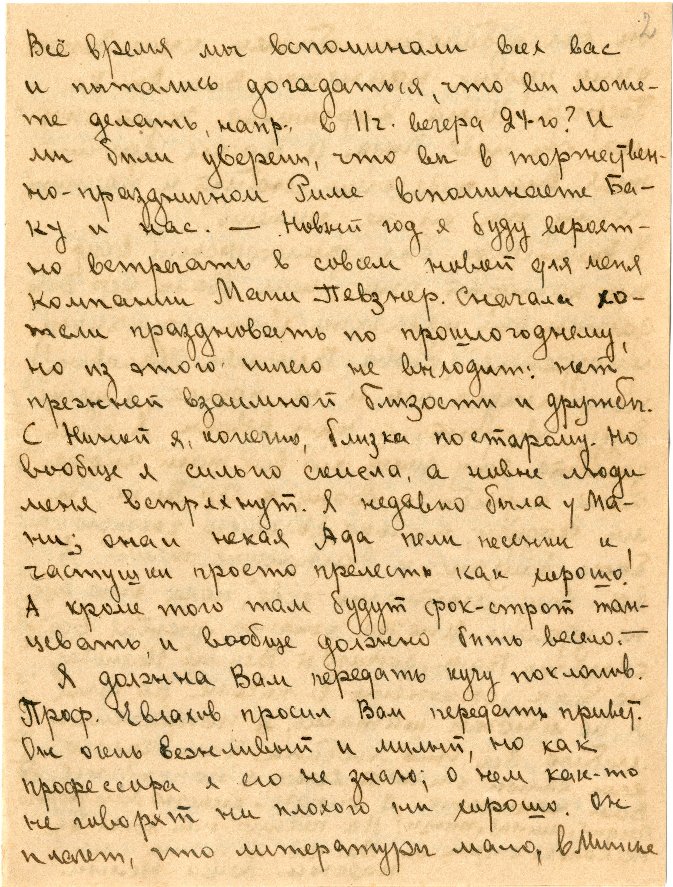 2
Всё время мы вспоминали всех вас
и пытались догадаться, что вы може-
те делать, напр. в 11 ч. вечера 24-го? И
мы были уверены, что вы в торжествен-
но-праздничном Риме вспоминаете Ба-
ку и нас. — Новый год я буду вероят-
но встречать в совсем новой для меня
компании Мани Певзнер. Сначала хо-
тели праздновать по прошлогоднему,
но из этого ничего не выходит: нет
прежней взаимной близости и дружбы.
С Ниной я, конечно, близка постарому. Но
вообще я сильно скисла, а новые люди
меня встряхнут. Я недавно была у Ма-
ни; она и некая Ада пели песенки и
частушки просто прелесть как хорошо!
А кроме того там будут фокстрот тан-
цевать, и вообще должно быть весело. —
Я должна Вам передать кучу поклонов.
Проф. Евлахов просил Вам передать привет.
Он очень вежливый и милый, но как
профессора я его не знаю; о нем как-то
не говорят ни плохого ни хорошо. Он
плачет, что литературы мало, в Минске